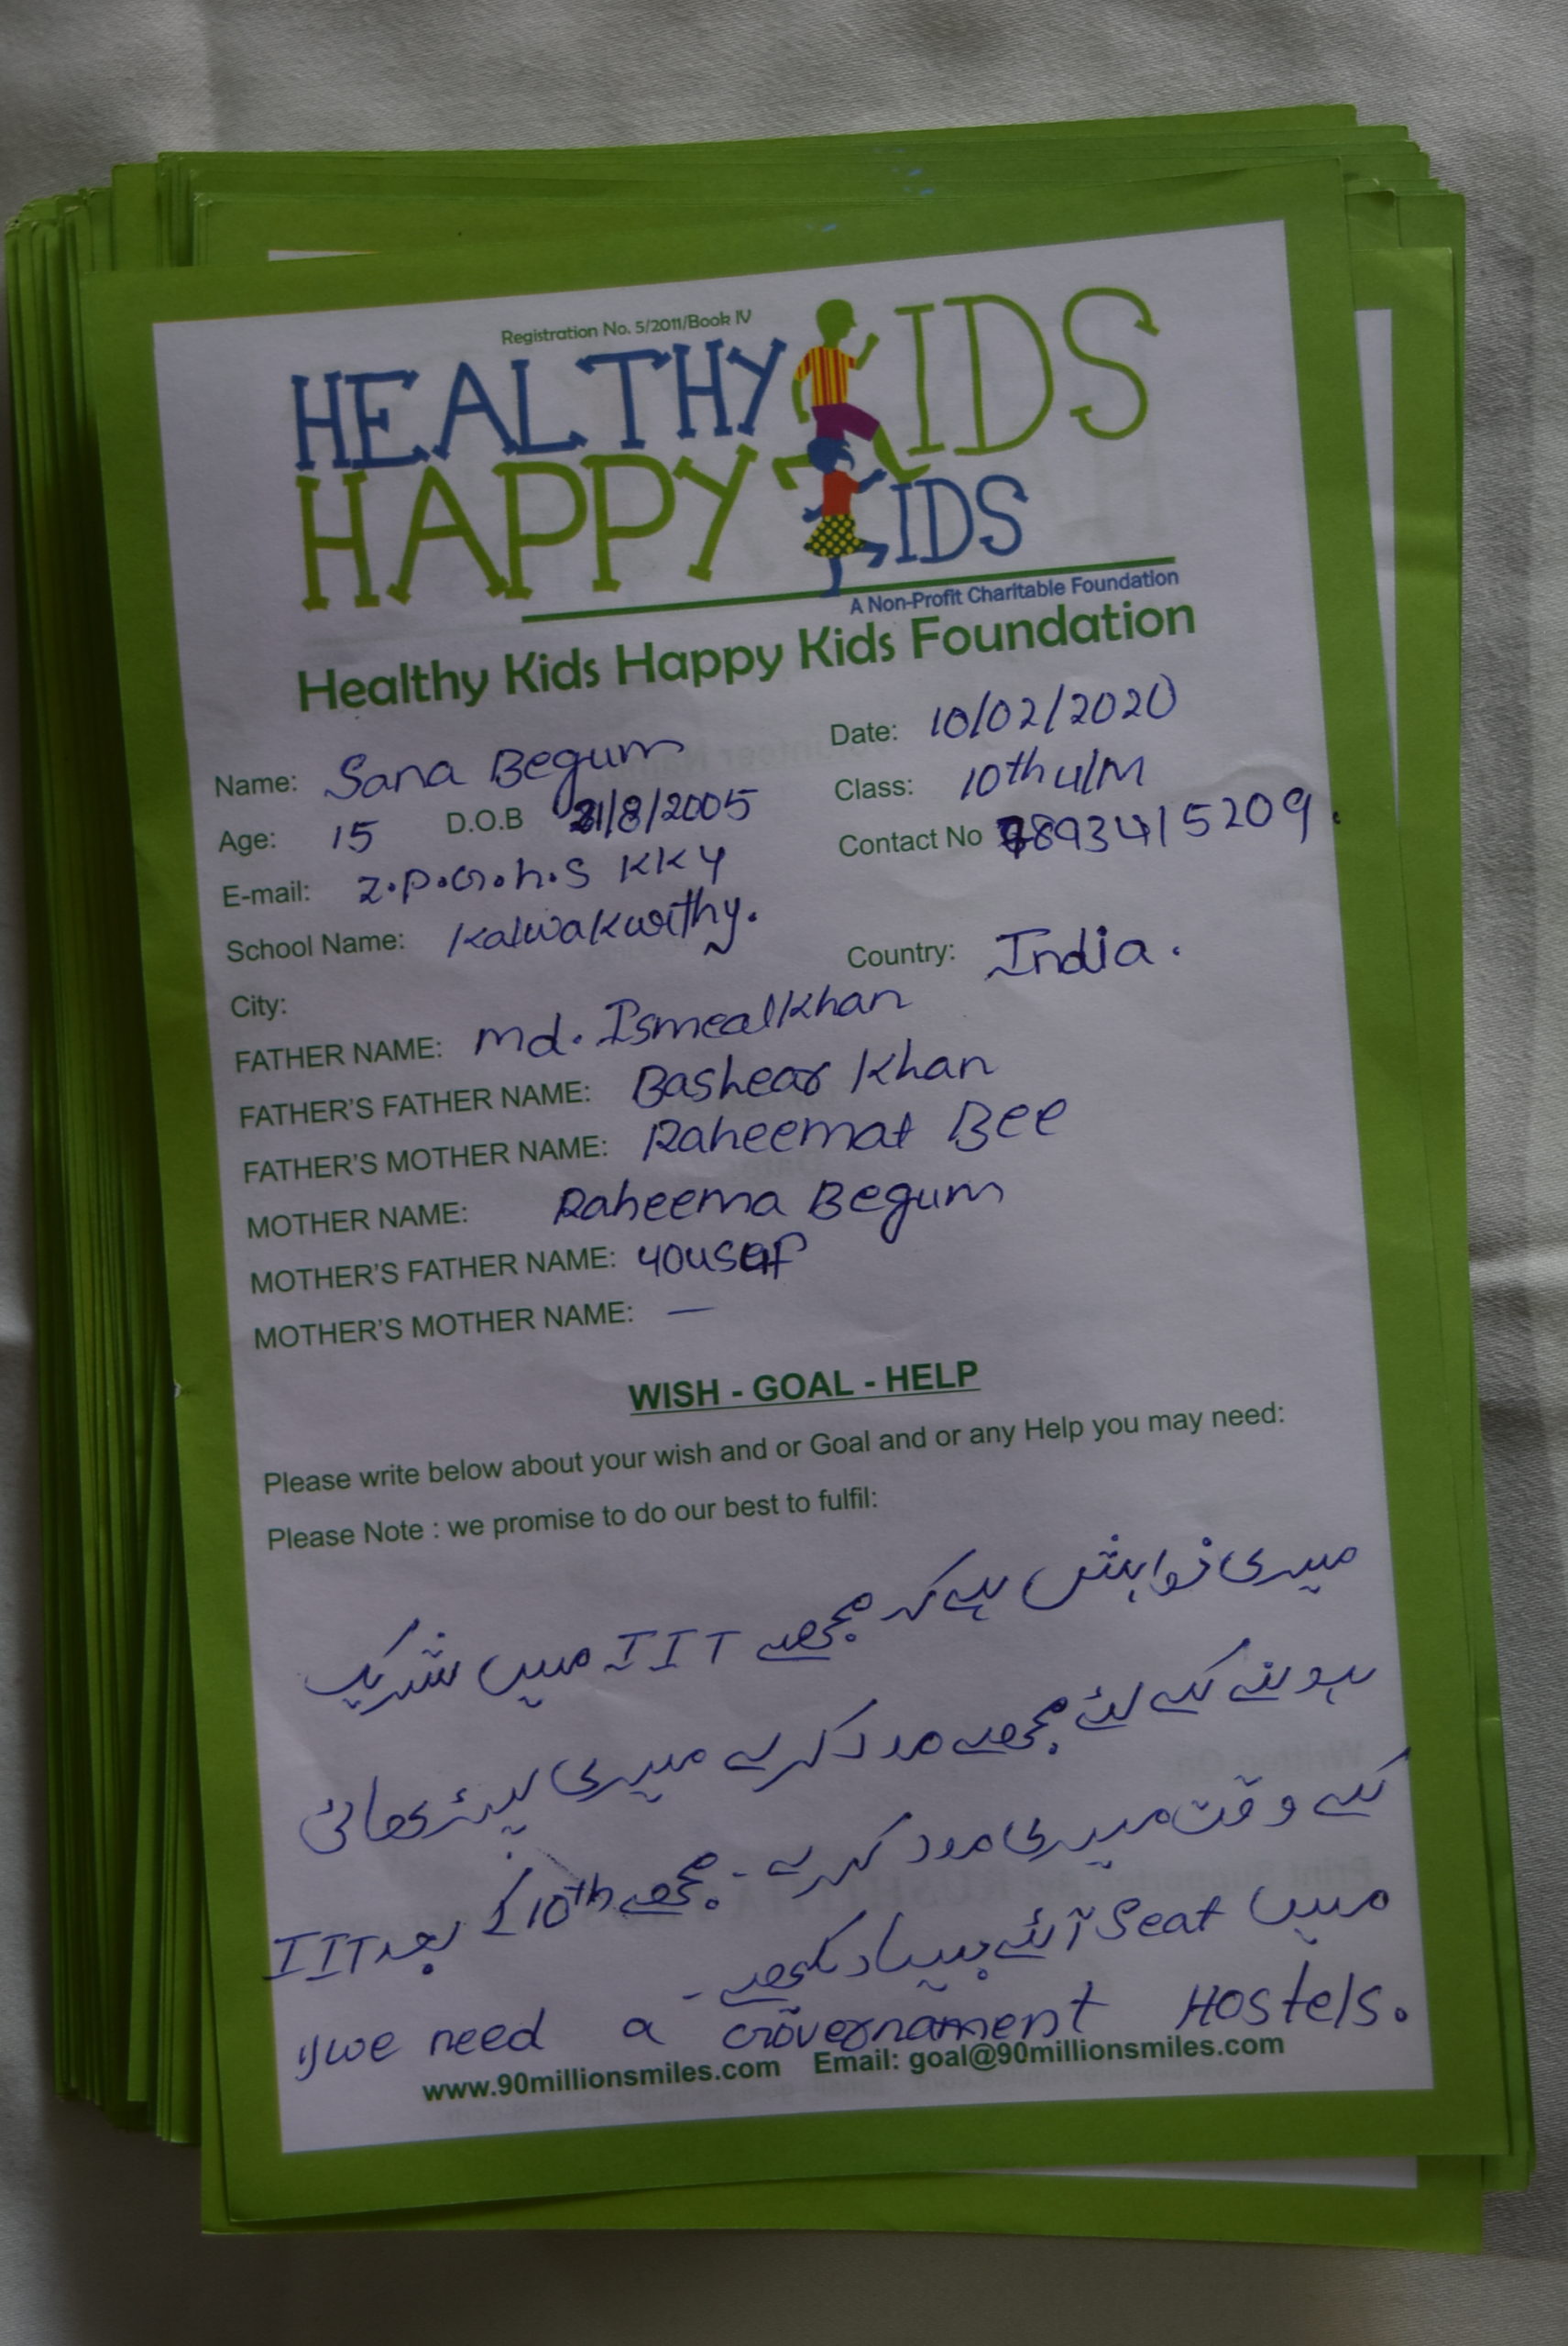 Registration No. 5/2011/Book IV
HEALTHY KIDS
HAPPY KIDS
A Non-Profit Charitable Foundation
Healthy Kids Happy Kids Foundation
Name: Sana Begum Date: 10/02/2020
Age: 15 D.O.B 21/8/2005 Class: 10th u/M
E-mail: Z.P.G.h.S KKY Contact No 7893415209.
School Name: Kalwakurthy.
City: Country: India.
FATHER NAME: Md. Ismealkhan
FATHER'S FATHER NAME: Bashear Khan
FATHER'S MOTHER NAME: Raheemat Bee
MOTHER NAME: Raheema Begum
MOTHER'S FATHER NAME: yousaf
MOTHER'S MOTHER NAME: —
WISH - GOAL - HELP
Please write below about your wish and or Goal and or any Help you may need:
Please Note : we promise to do our best to fulfil:
میری خواہش ہے کہ مجھے IIT میں شریک
ہونے کے لئے مجھے مدد کرے میری پڑھائی
کے وقت میری مدد کرے - مجھے 10th کے بعد IIT
میں Seat آئے
we need a Governament Hostels.
www.90millionsmiles.com Email: goal@90millionsmiles.com